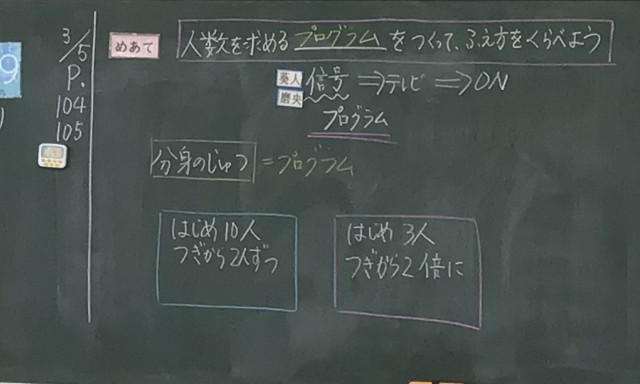 3/5
P.
104
105
9
めあて
人数を求めるプログラムをつくって、ふえ方をくらべよう
葵人
磨央
信号⇒テレビ⇒ON
プログラム
分身のじゅつ=プログラム
はじめ10人
つぎから2人ずつ
はじめ3人
つぎから2倍に